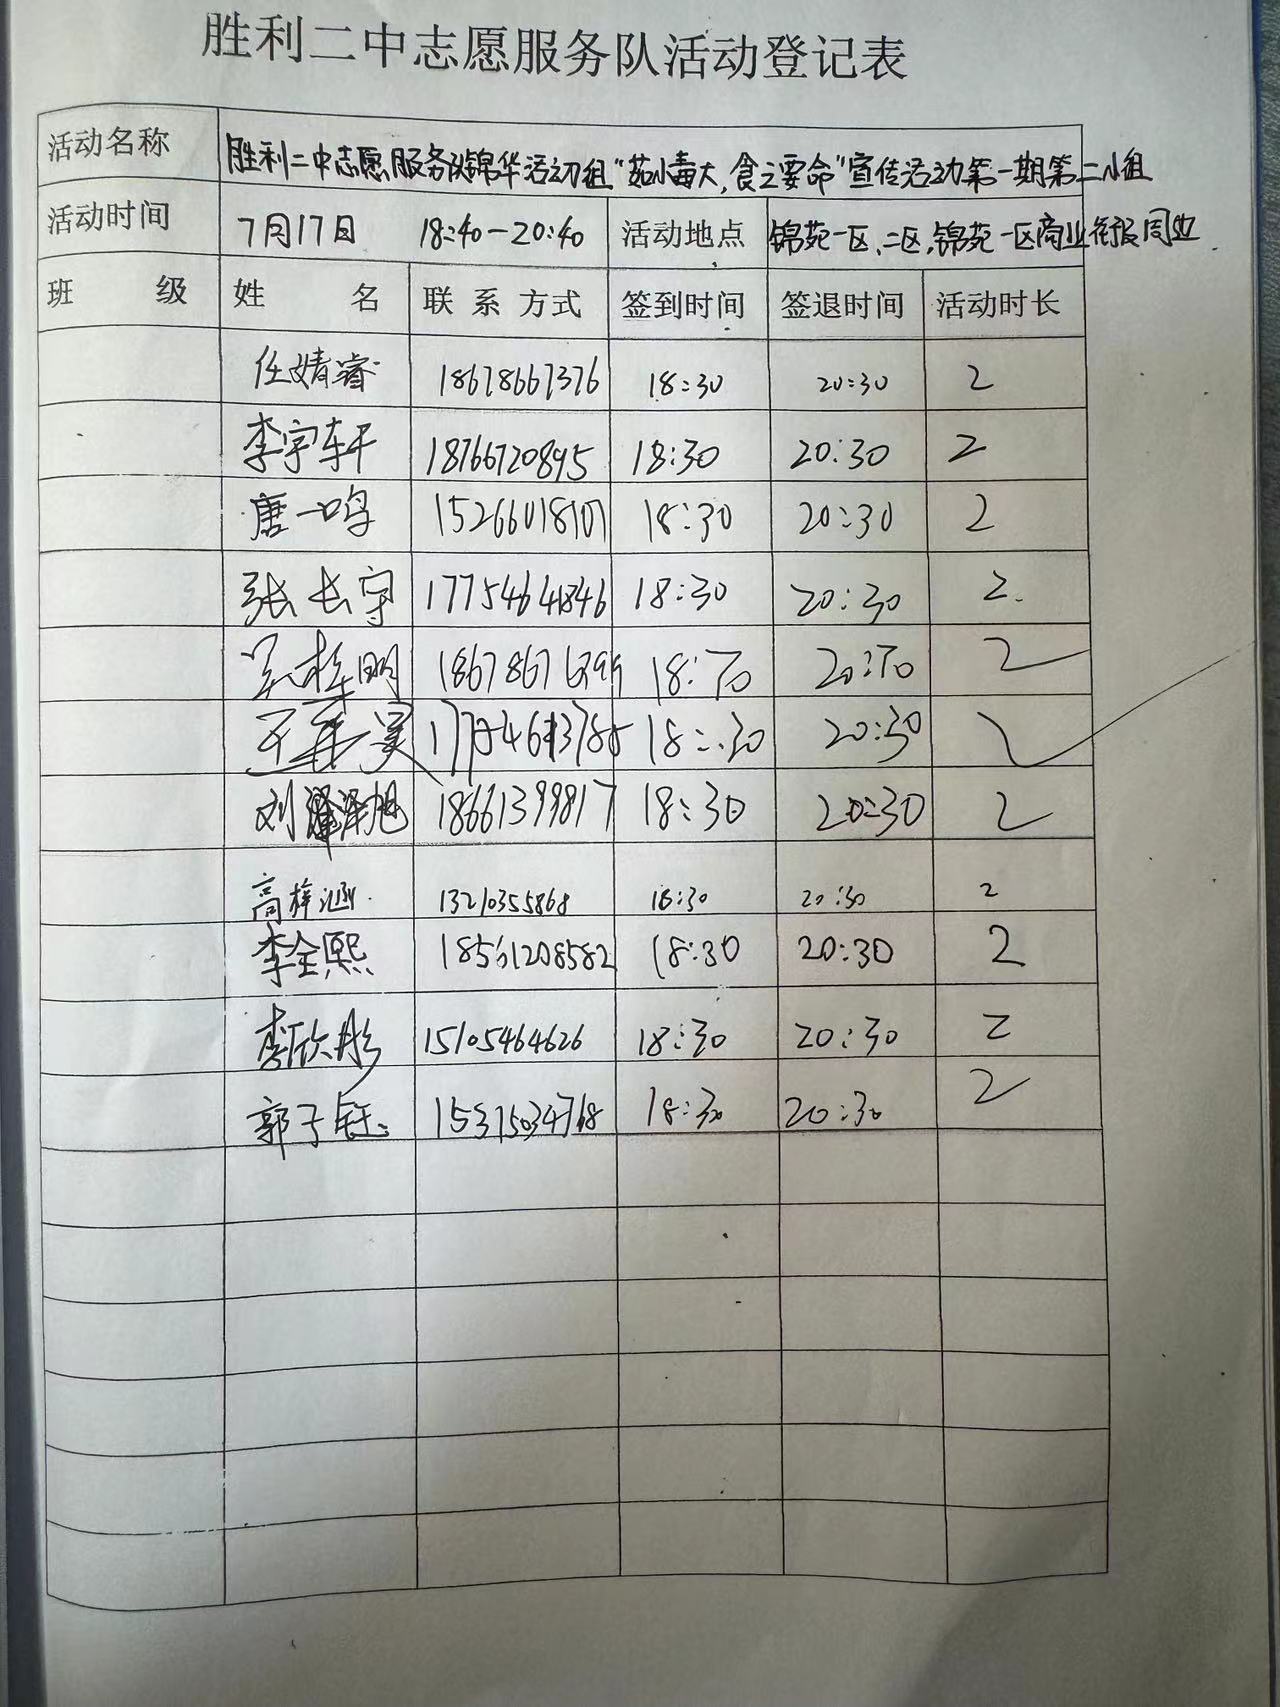 胜利二中志愿服务队活动登记表
活动名称 胜利二中志愿服务队锦华活动组"菇小毒大,食之要命"宣传活动第一期第二小组
活动时间 7月17日 18:40—20:40 活动地点 锦苑一区、二区,锦苑一区商业街及周边
班 级 姓 名 联系方式 签到时间 签退时间 活动时长
任婧睿 18678667376 18:30 20:30 2
李宇轩 18766720895 18:30 20:30 2
唐一鸣 15266018107 18:30 20:30 2
张长守 17754641846 18:30 20:30 2
梓明 18:30 20:30 2
王 昊 18:30 20:30 2
刘泽旭 18661399817 18:30 20:30 2
高梓涵 13210355868 18:30 20:30 2
李全熙 18561208582 18:30 20:30 2
李欣彤 15105464626 18:30 20:30 2
郭子钰 15315034768 18:30 20:30 2